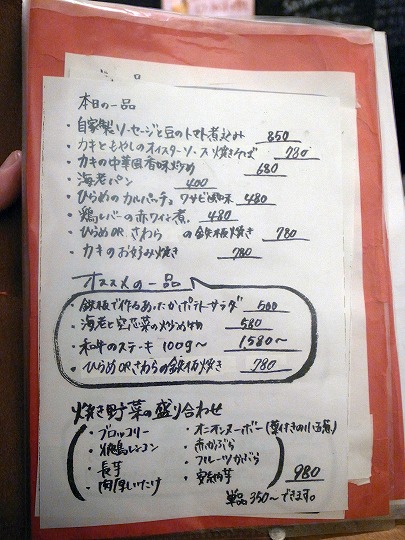 本日の一品
・自家製ソーセージと豆のトマト煮込み 850
・カキともやしのオイスターソース焼きそば 730
・カキの中華風香味炒め 680
・海老パン 400
・ひらめのカルパッチョ ワサビ風味 480
・鶏レバーの赤ワイン煮 480
・ひらめ OR さわら の鉄板焼き 780
・カキのお好み焼き 780
オススメの一品
・鉄板で作るあったかポテトサラダ 500
・海老と空芯菜の炒め物 580
・和牛のステーキ 100g〜 1580〜
・ひらめ OR さわらの鉄板焼き 780
焼き野菜の盛り合わせ
・ブロッコリー
・飛鳥レンコン
・長芋
・肉厚しいたけ
・オニオンヌーボー (葉付きの小玉葱)
・赤かぶら
・フルーツかぶら
・安納芋
980
単品350〜できます。